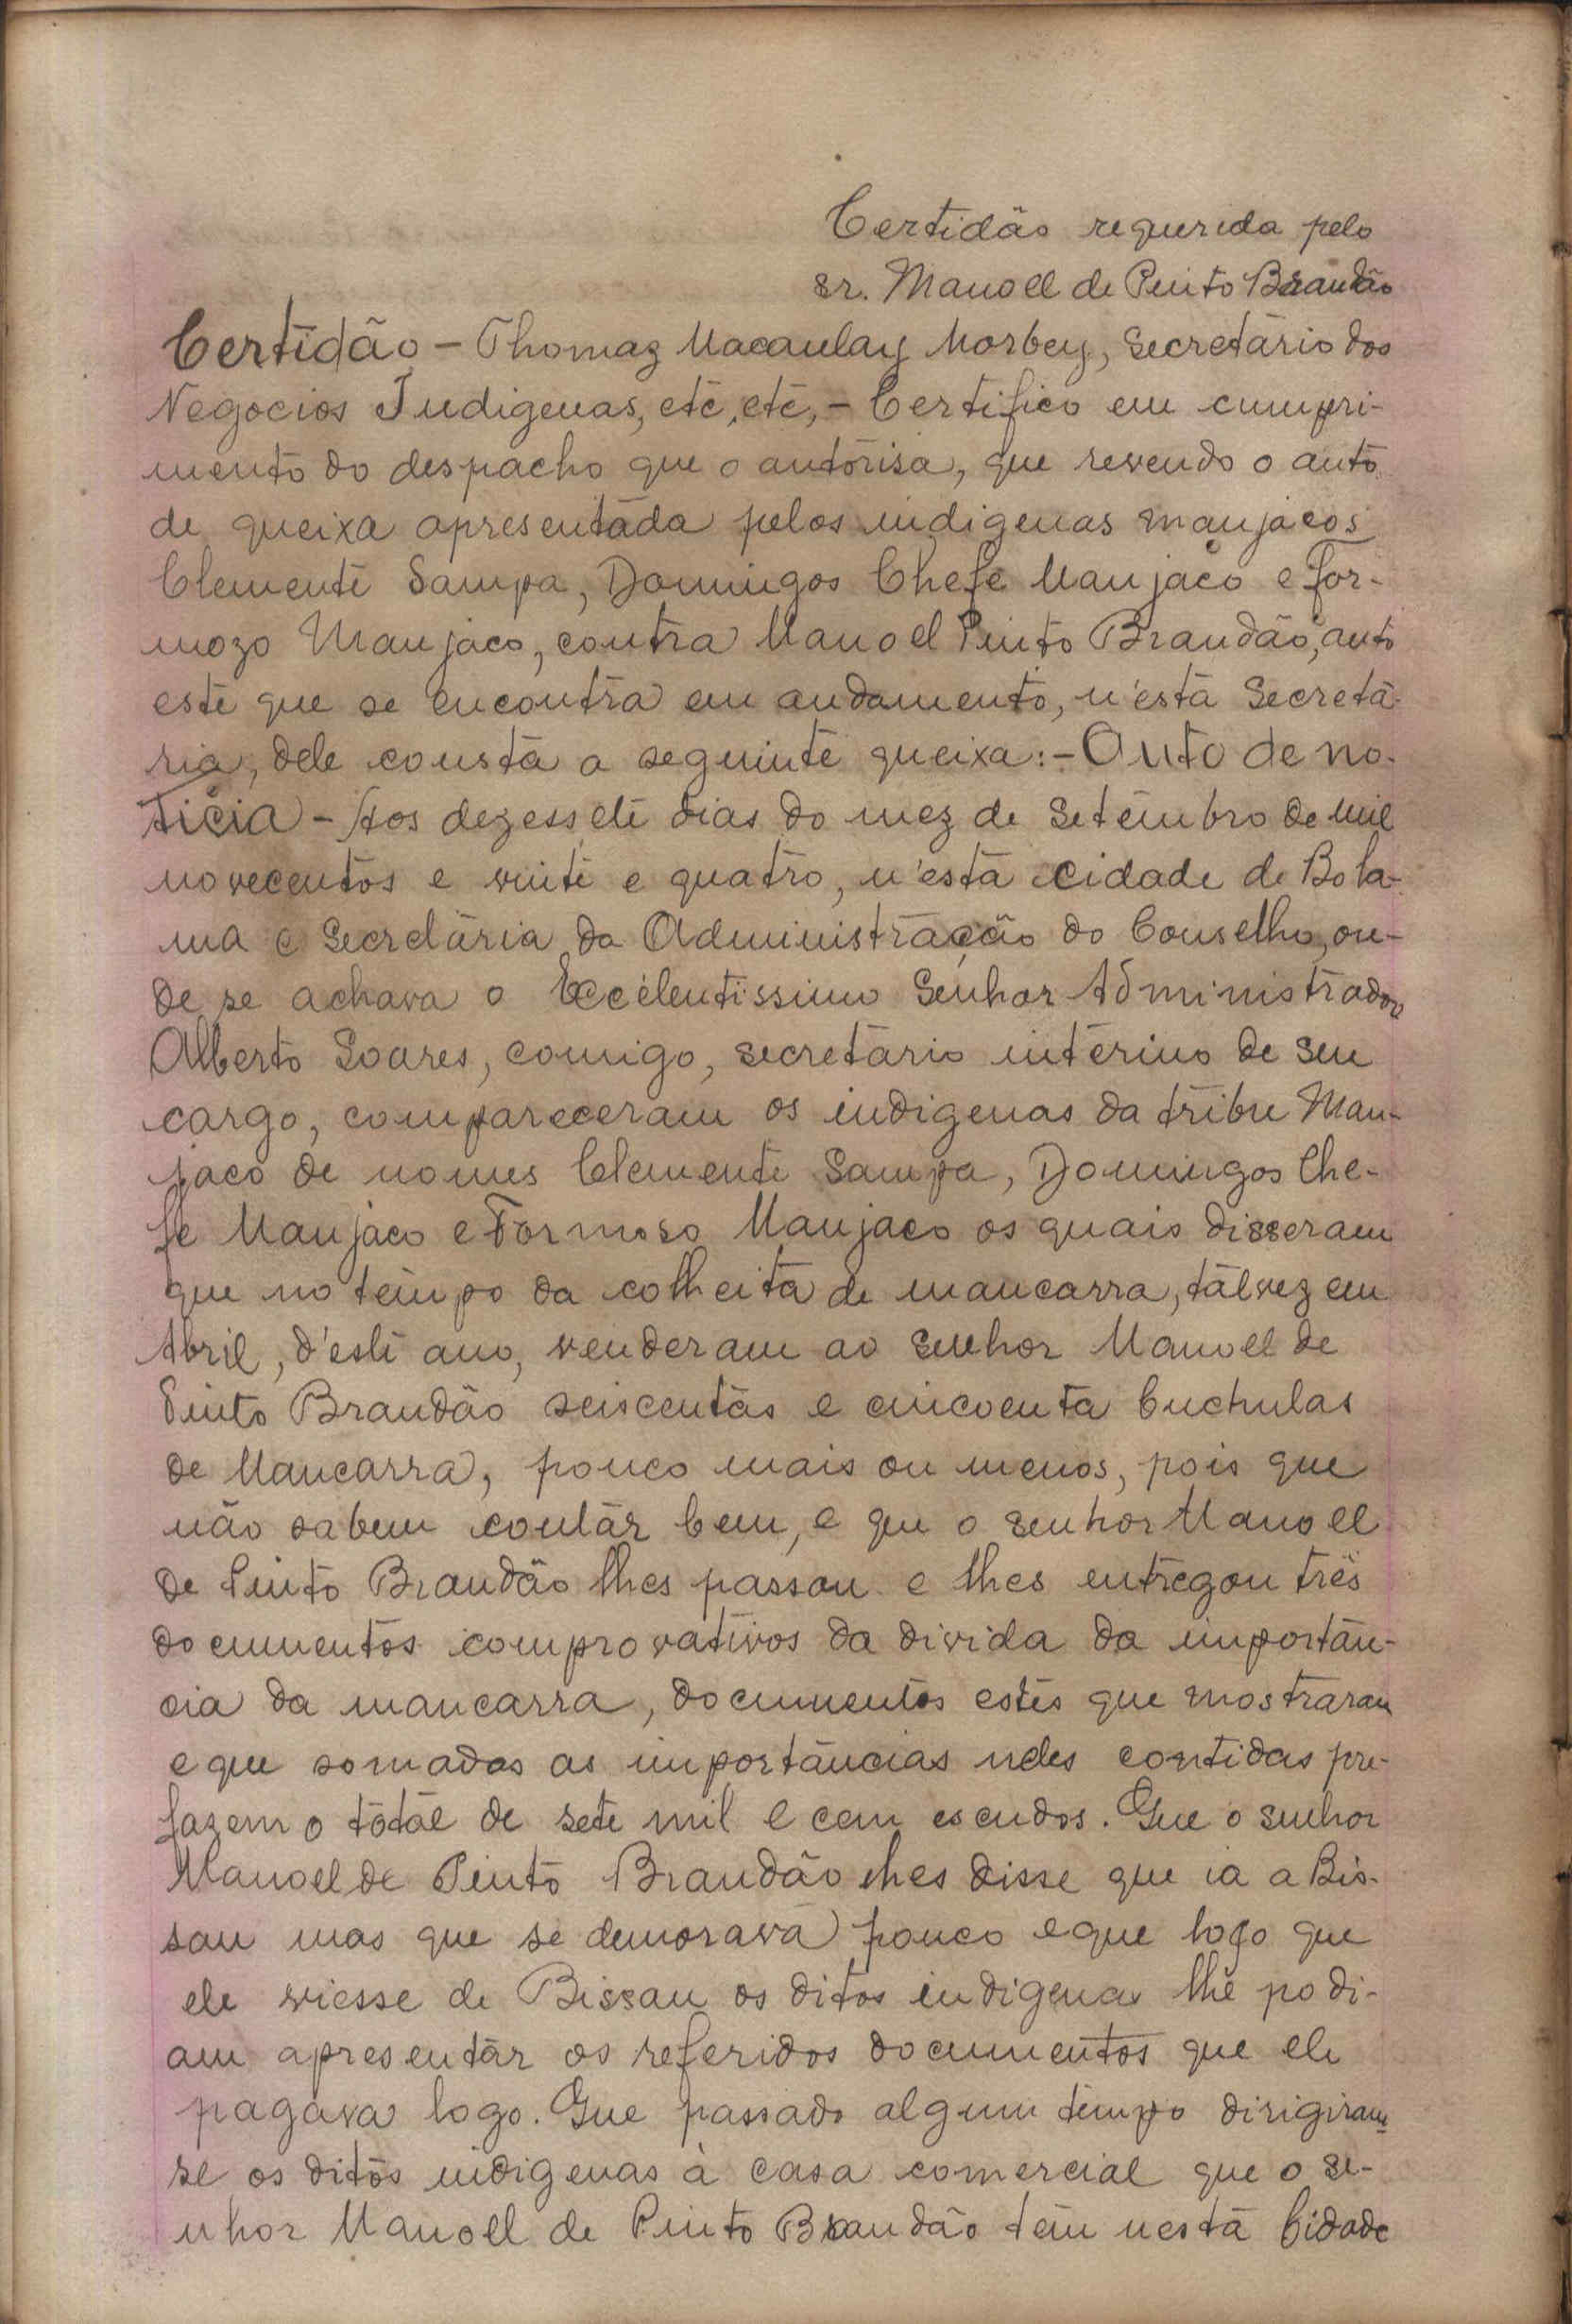 Certidão requerida pelo
sr. Manoel de Pinto Brandão
Certidão – Thomaz Macaulay Morbey, Secretário dos
Negocios Indigenas, etc, etc, – Certifico em cumpri-
mento do despacho que o autorisa, que revendo o auto
de queixa apresentada pelos indigenas manjacos
Clemente Sampa, Domingos Chefe Manjaco e For-
mozo Manjaco, contra Manoel Pinto Brandão, auto
este que se encontra em andamento, n'esta Secreta-
ria, dele consta a seguinte queixa: – Auto de no-
ticia – Aos dezessete dias do mez de Setembro de mil
novecentos e vinte e quatro, n'esta cidade de Bola-
ma e Secretária da Administração do Conselho, on-
de se achava o Excelentissimo Senhor Administrador
Alberto Soares, comigo, secretario interino de seu
cargo, compareceram os indigenas da tribu Man-
jaco de nomes Clemente Sampa, Domingos Che-
fe Manjaco e Formoso Manjaco os quais disseram
que no tempo da colheita de mancarra, talvez em
Abril, d'este ano, venderam ao senhor Manoel de
Pinto Brandão seiscentas e cincoenta buchulas
de Mancarra, pouco mais ou menos, pois que
não sabem contar bem, e que o senhor Manoel
de Pinto Brandão lhes passou e lhes entregou três
documentos comprovativos da divida da importan-
cia da mancarra, documentos estes que mostraram
e que somadas as importâncias neles contidas pre-
fazem o total de sete mil e cem escudos. Que o senhor
Manoel de Pinto Brandão lhes disse que ia a Bis-
sau mas que se demorava pouco e que logo que
ele viesse de Bissau os ditos indigenas lhe podi-
am apresentar os referidos documentos que ele
pagava logo. Que passado algum tempo dirigiram
se os ditos indigenas à casa comercial que o se-
nhor Manoel de Pinto Brandão tem nesta Cidade